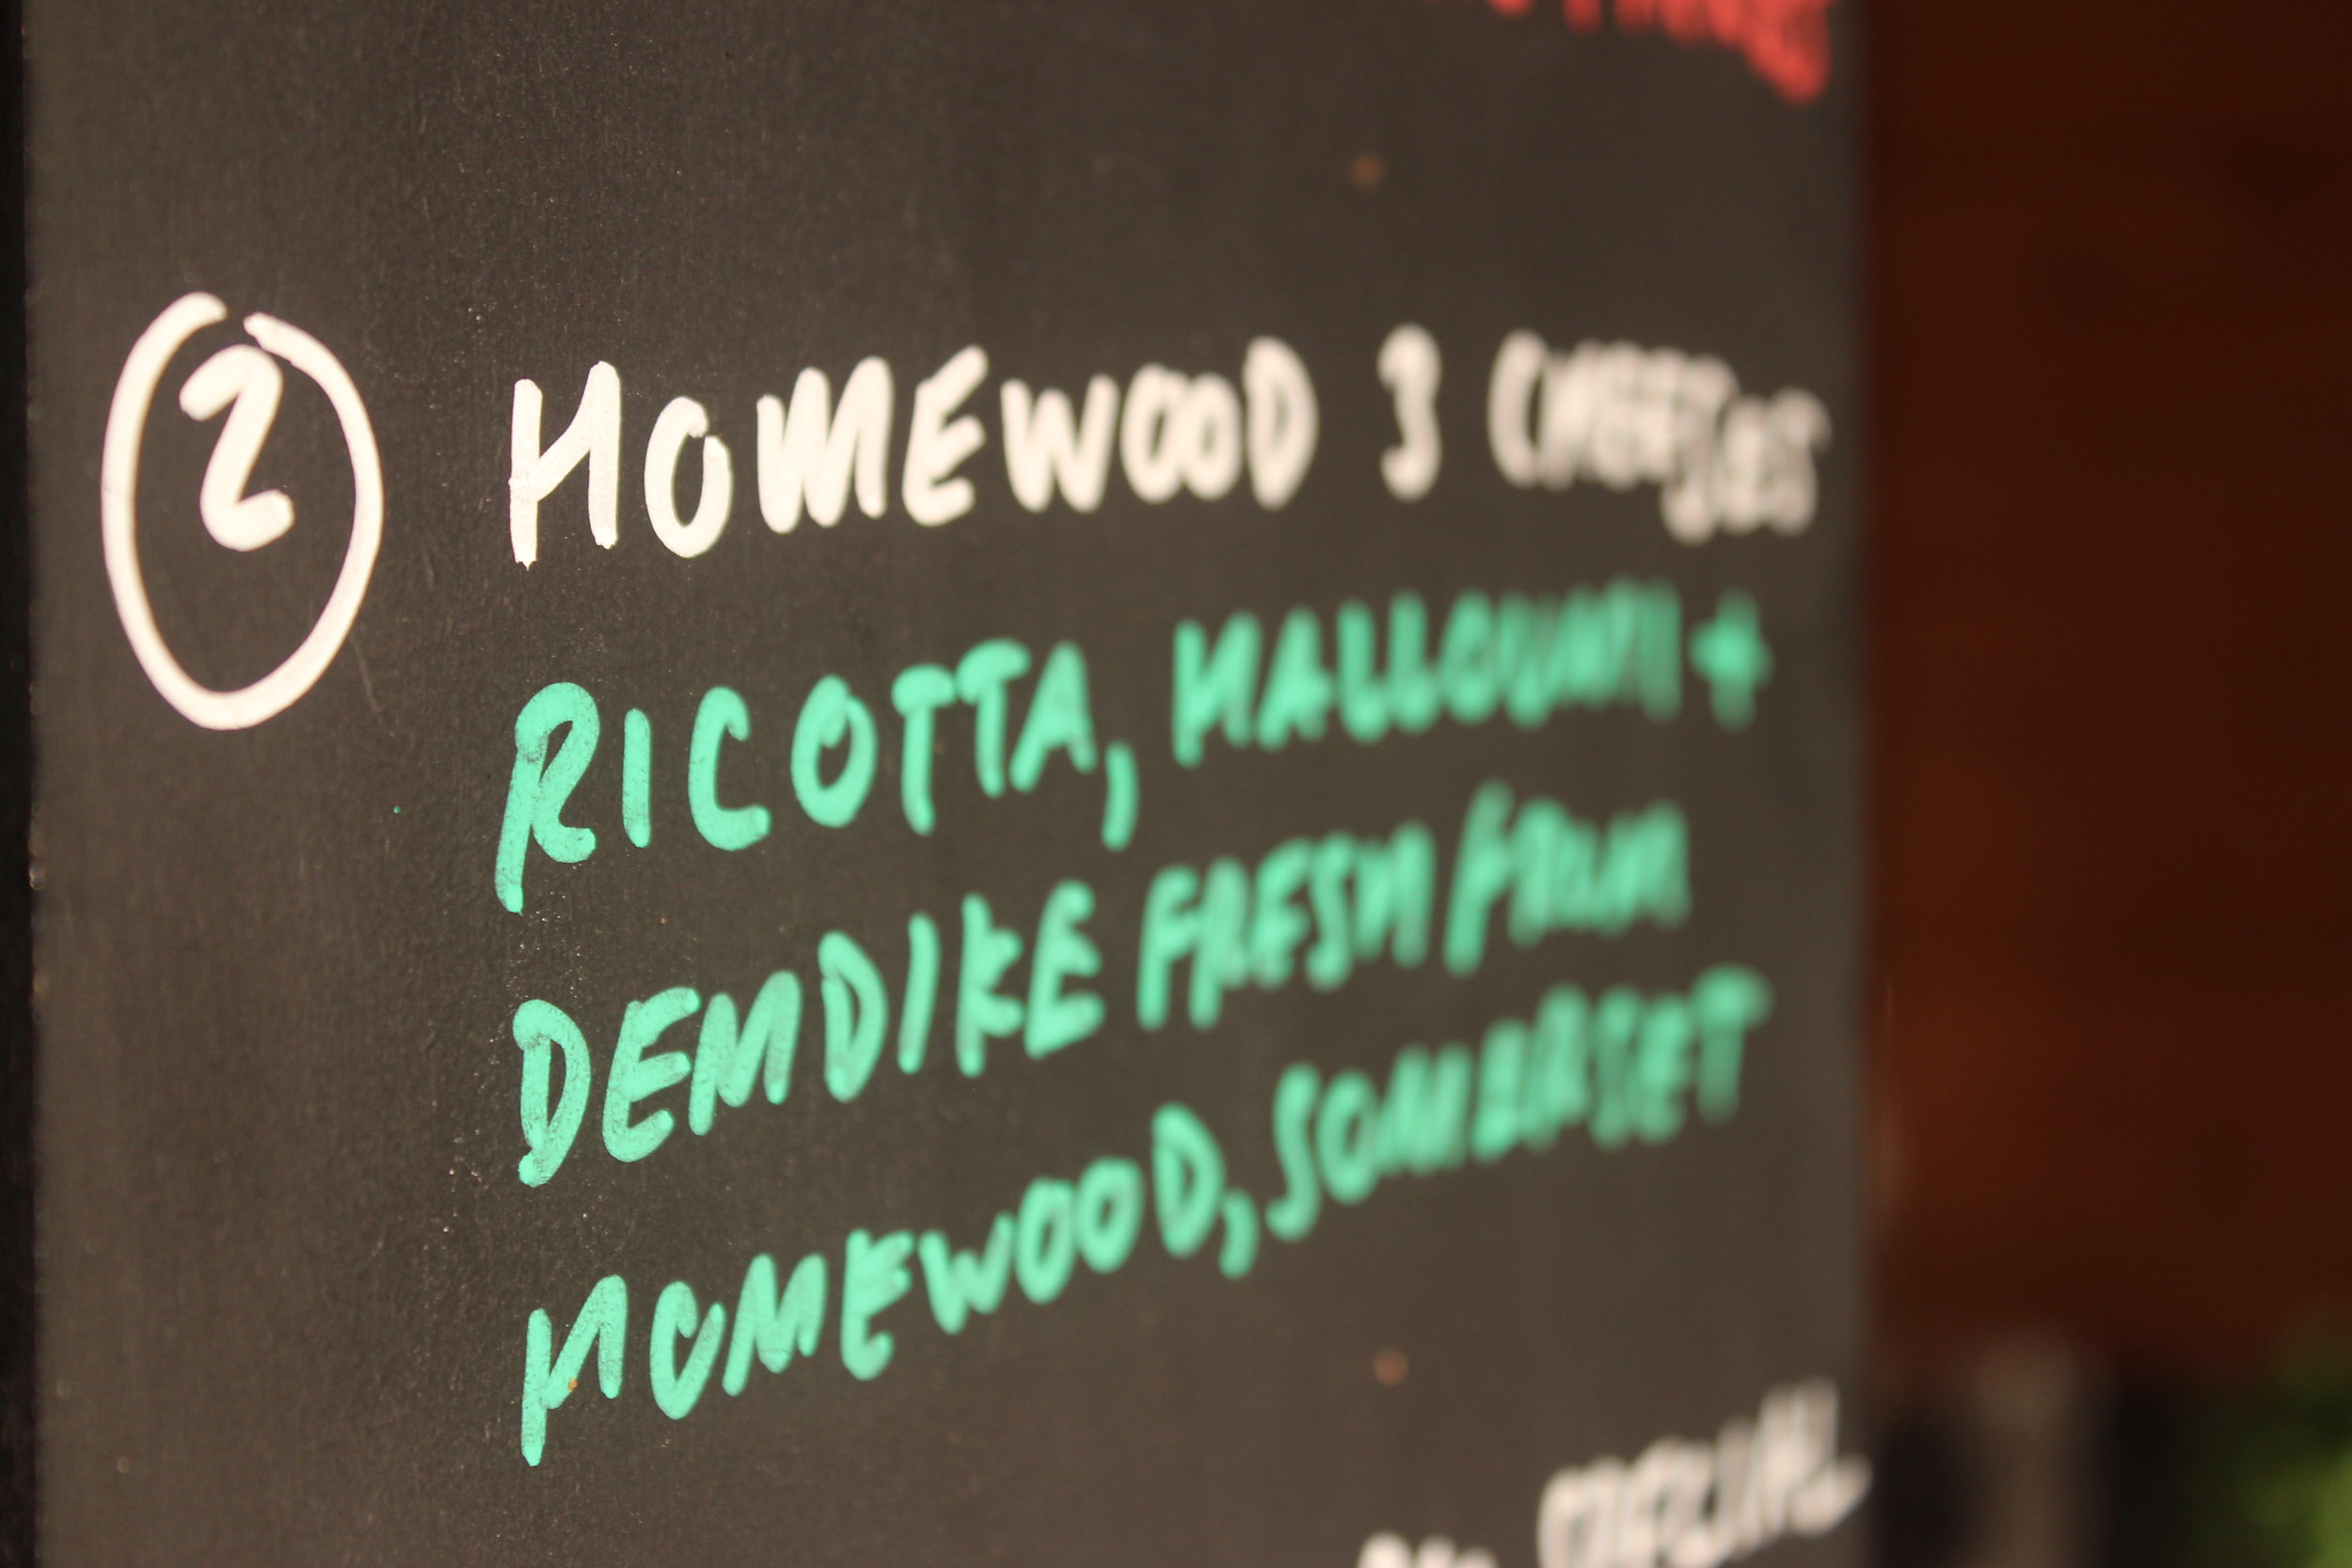 2 HOMEWOOD 3 CHEESES
RICOTTA, HALLOUMI +
DEMDIKE FRESH FROM
HOMEWOOD, SOMERSET